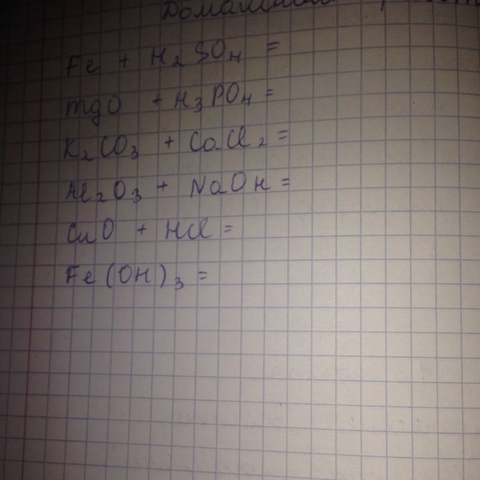 Домашняя
Fe + H₂SO₄ =
MgO + H₃PO₄ =
K₂CO₃ + CaCl₂ =
Al₂O₃ + NaOH =
CuO + HCl =
Fe(OH)₃ =